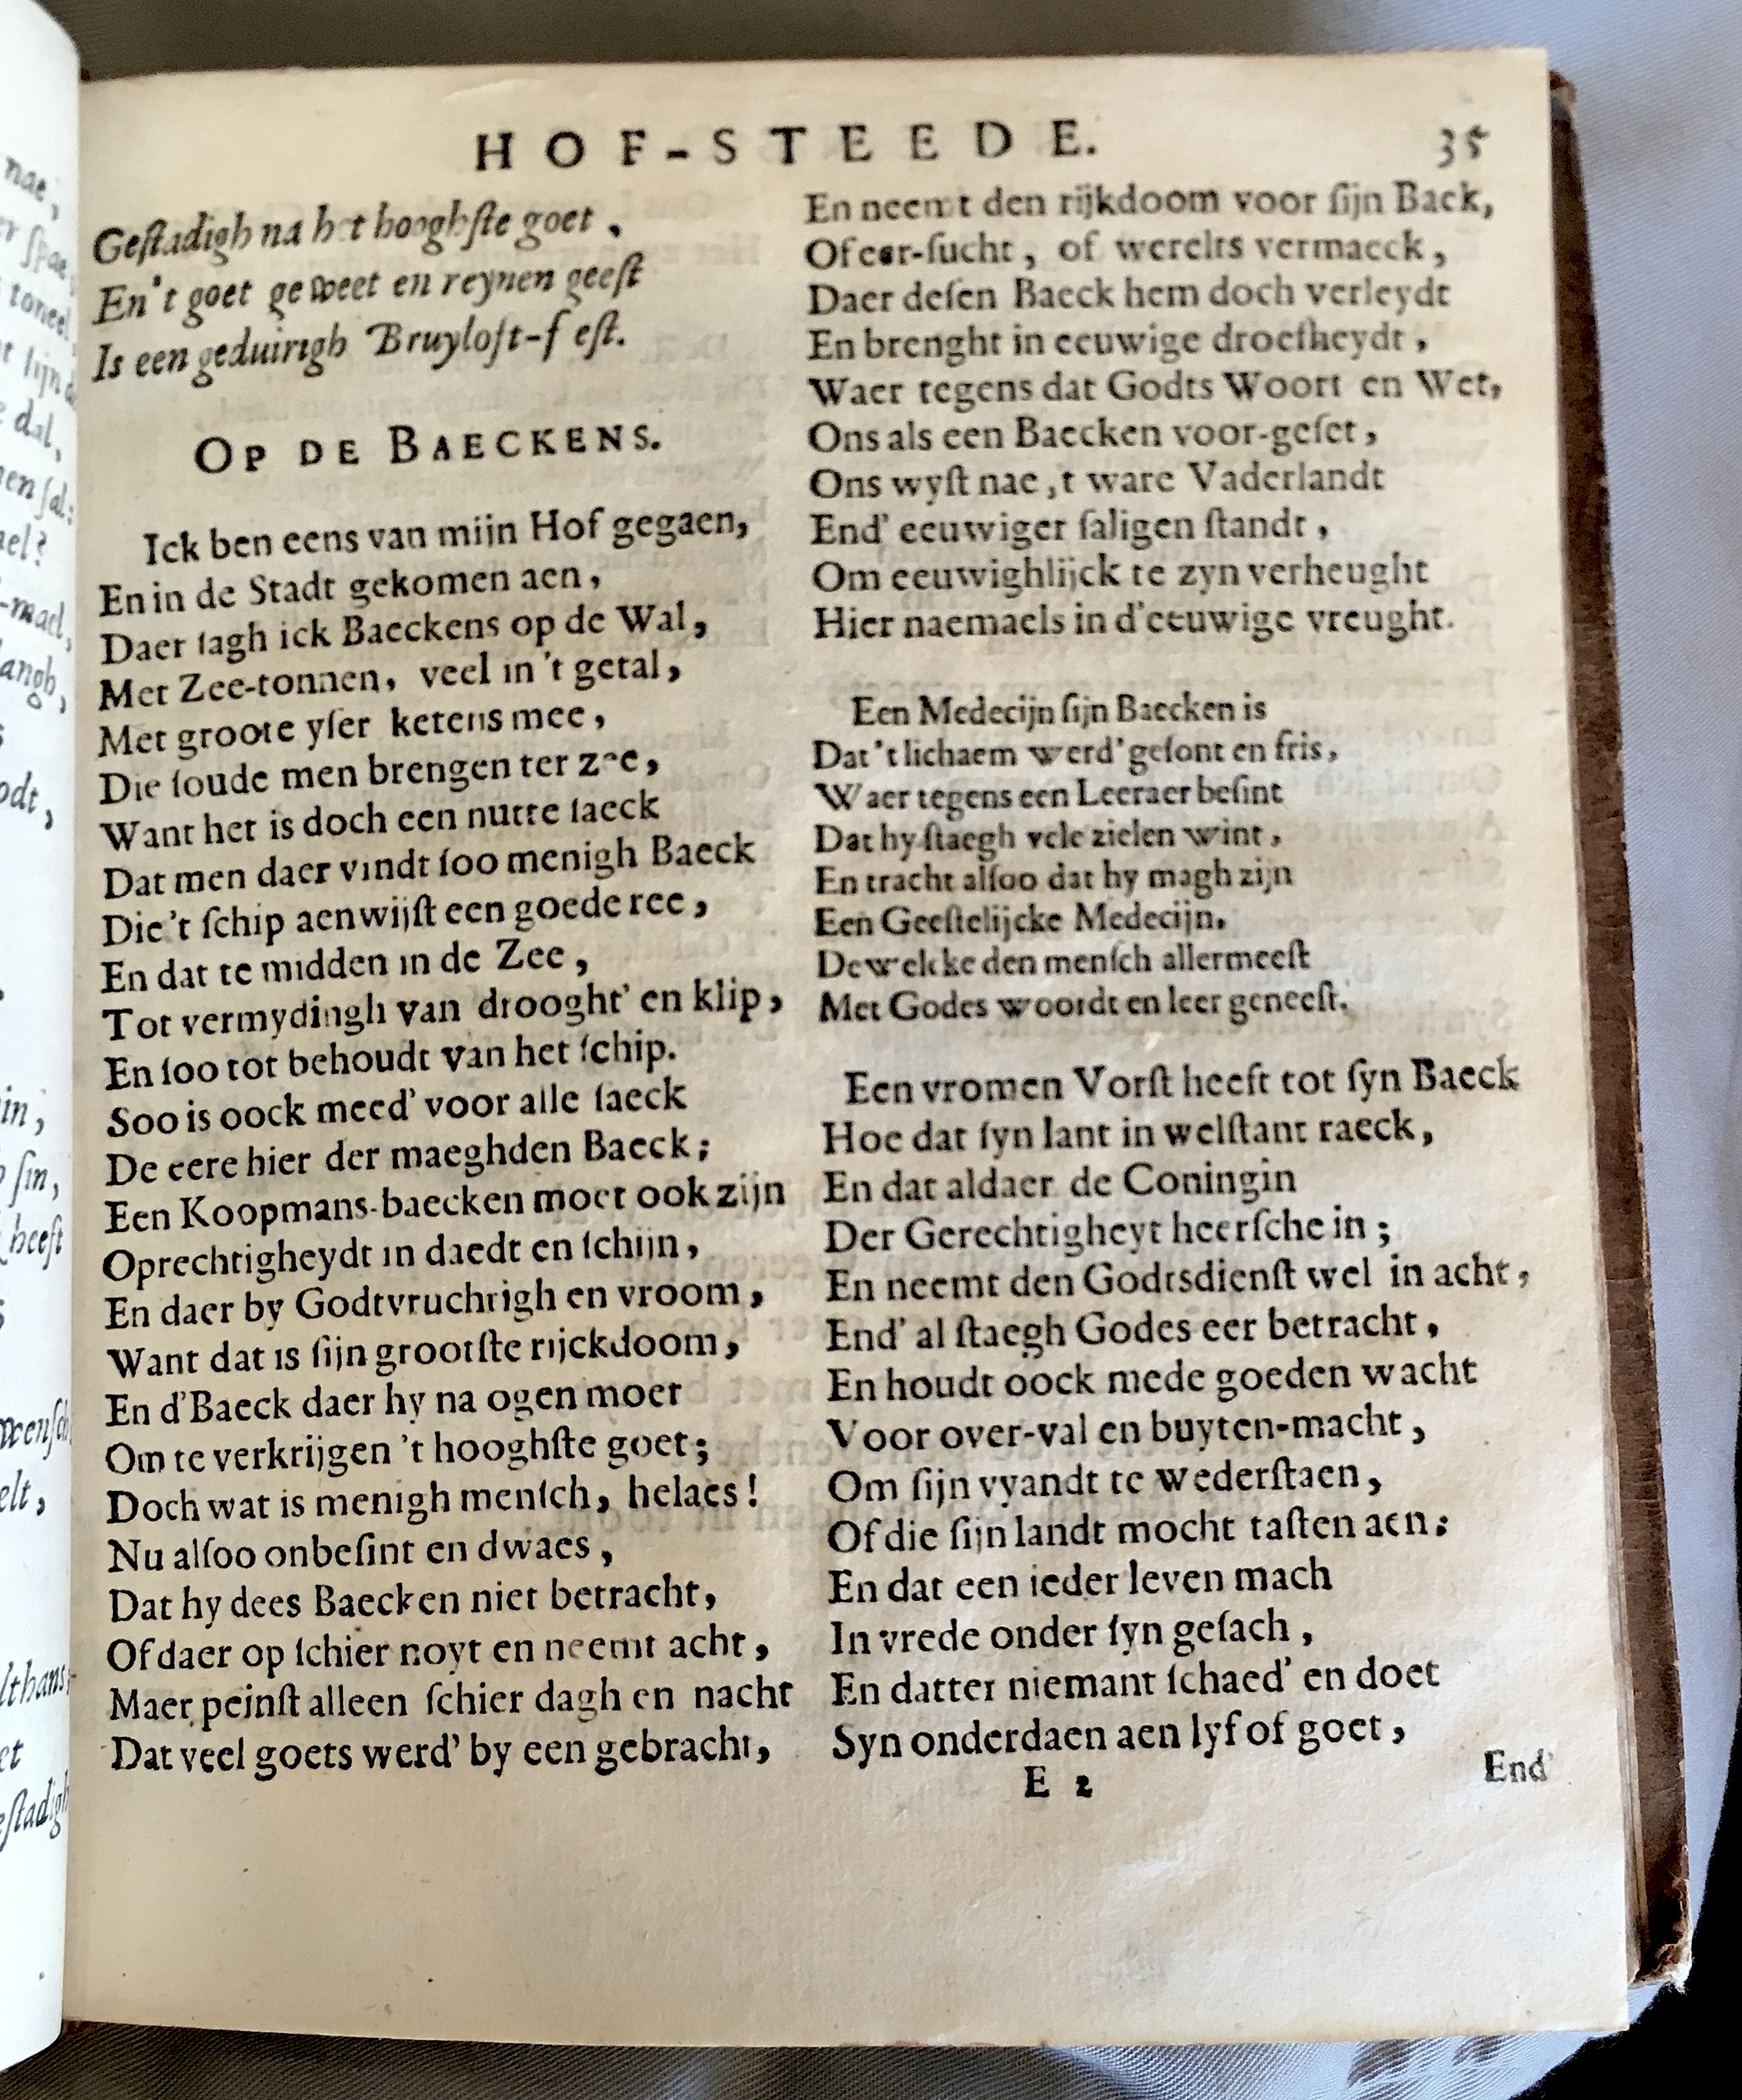 HOF-STEEDE. 35
Geſtadigh na het hooghſte goet,
En 't goet geweet en reynen geeſt
Is een geduirigh Bruyloft-feſt.
OP DE BAECKENS.
Ick ben eens van mijn Hof gegaen,
En in de Stadt gekomen aen,
Daer ſagh ick Baeckens op de Wal,
Met Zee-tonnen, veel in 't getal,
Met groote yſer ketens mee,
Die ſoude men brengen ter zee,
Want het is doch een nutte ſaeck
Dat men daer vindt ſoo menigh Baeck
Die 't ſchip aenwijſt een goede ree,
En dat te midden in de Zee,
Tot vermydingh van drooght' en klip,
En ſoo tot behoudt van het ſchip.
Soo is oock meed' voor alle ſaeck
De eere hier der maeghden Baeck;
Een Koopmans-baecken moet ook zijn
Oprechtigheydt in daedt en ſchijn,
En daer by Godtvruchtigh en vroom,
Want dat is ſijn grootſte rijckdoom,
En d'Baeck daer hy na ogen moet
Om te verkrijgen 't hooghſte goet;
Doch wat is menigh menſch, helaes!
Nu alſoo onbeſint en dwaes,
Dat hy dees Baecken niet betracht,
Of daer op ſchier noyt en neemt acht,
Maer peinſt alleen ſchier dagh en nacht
Dat veel goets werd' by een gebracht,
En neemt den rijkdoom voor ſijn Baek,
Of eer-ſucht, of werelts vermaeck,
Daer deſen Baeck hem doch verleydt
En brenght in eeuwige droefheydt,
Waer tegens dat Godts Woort en Wet,
Ons als een Baecken voor-geſet,
Ons wyſt nae ,t ware Vaderlandt
End' eeuwiger ſaligen ſtandt,
Om eeuwighlijck te zyn verheught
Hier naemaels in d'eeuwige vreught.
Een Medecijn ſijn Baecken is
Dat 't lichaem werd' geſont en fris,
Waer tegens een Leeraer beſint
Dat hy ſtaegh vele zielen wint,
En tracht alſoo dat hy magh zijn
Een Geeſtelijcke Medecijn.
De welcke den menſch allermeeſt
Met Godes woordt en leer geneeſt.
Een vromen Vorſt heeft tot ſyn Baeck
Hoe dat ſyn lant in welſtant raeck,
En dat aldaer de Coningin
Der Gerechtigheyt heerſche in;
En neemt den Godtsdienſt wel in acht,
End' al ſtaegh Godes eer betracht,
En houdt oock mede goeden wacht
Voor over-val en buyten-macht,
Om ſijn vyandt te wederſtaen,
Of die ſijn landt mocht taſten aen:
En dat een ieder leven mach
In vrede onder ſyn geſach,
En datter niemant ſchaed' en doet
Syn onderdaen aen lyf of goet,
E 2 End'